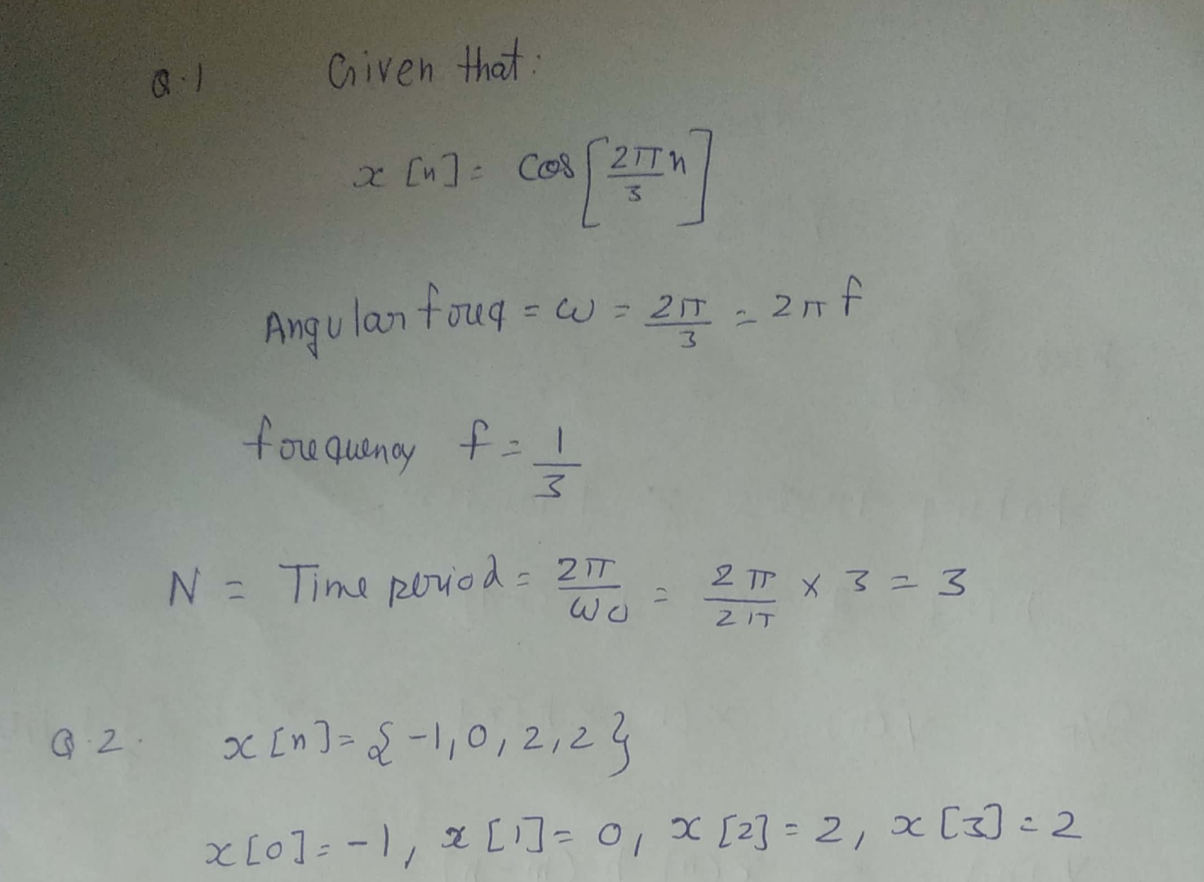 Q.1 Given that:
x[n] = cos[2πn/3]
Angular freq = ω = 2π/3 = 2πf
frequency f = 1/3
N = Time period = 2π/ω0 = 2π/2π × 3 = 3
Q.2. x[n] = {-1, 0, 2, 2}
x[0] = -1, x[1] = 0, x[2] = 2, x[3] = 2